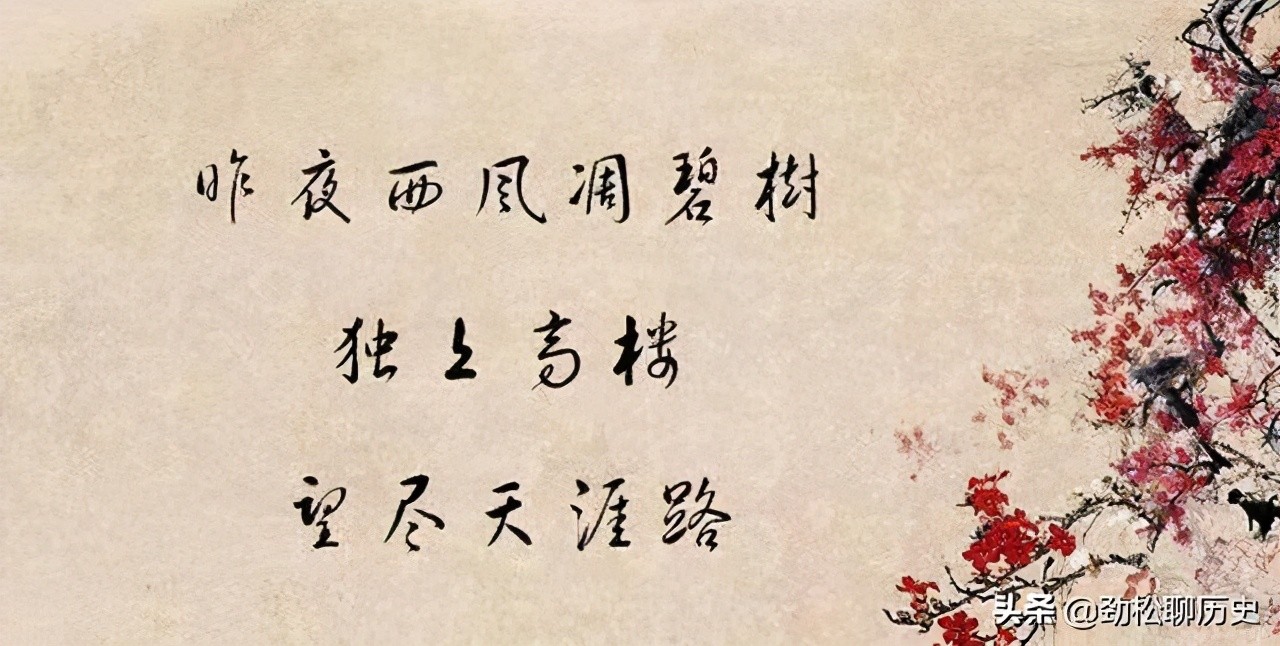 昨夜西风凋碧樹
独上高楼
望尽天涯路
头条 @劲松聊历史